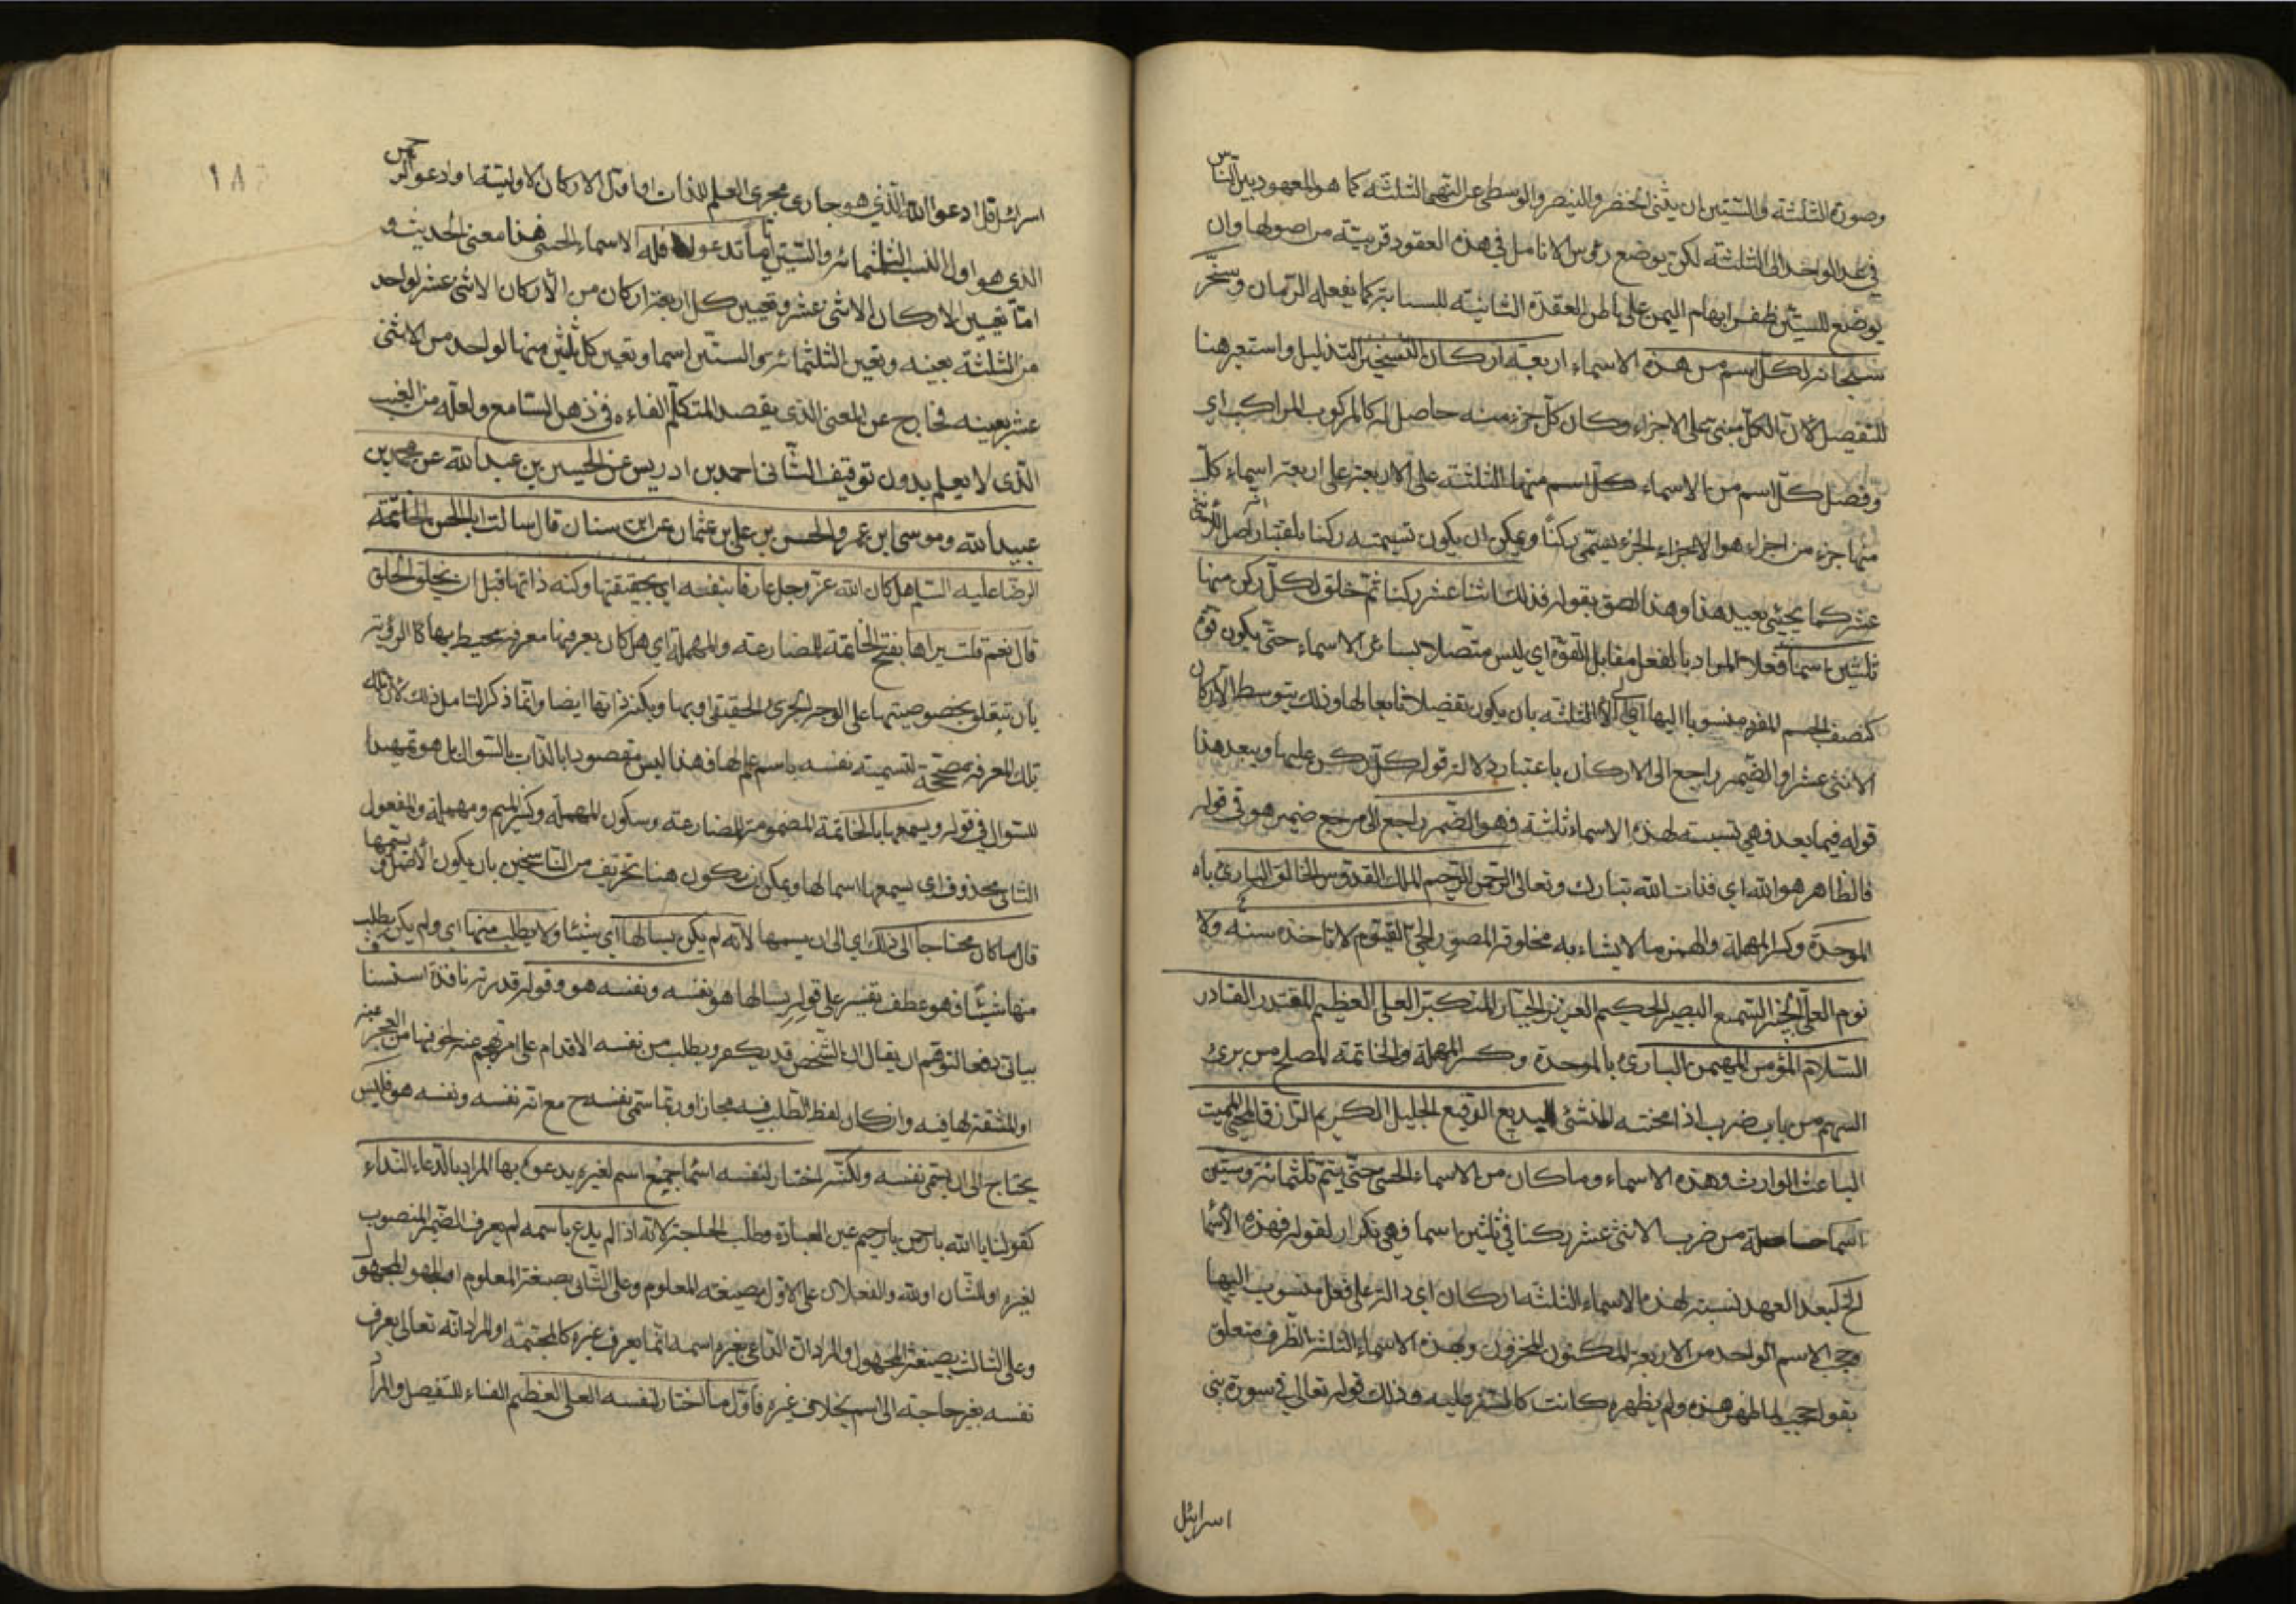 وصورة الثلثة والستين ان يثنى الخنصر والبنصر والوسطى عن التهما الثلثة كما هو المعهود بين الناس
في عد الواحد الى الثلثة لكن يوضع رؤس الانامل في هذه العقود قريبة من اصولها وان
يوضع للستين ظفر ابهام اليمنى على باطن العقدة الثانية للسبابة كما يفعله الرمان وسخر
سبحانه لكل اسم من هذه الاسماء اربعة اركان التسخير التذليل واستعير هنا
للتفصيل لان الكل مبنى على الاجزاء وكان كل جزء منه حاصل له كالمركوب للراكب اي
وفصل كل اسم من الاسماء كل اسم منها الثلثة على الاربعة على اربعة اسماء كل
منها جزء من اجزاء هو الاجزاء الجزء يسمى ركنا ويمكن ان يكون تسميته ركنا باعتبار اصل الاثنى
عشر كما يجيئ بعيد هذا وهذا الصق بقوله فذلك اثنا عشر ركنا ثم خلق لكل ركن منها
ثلثين اسما فعلا المراد بالفعل مقابل القوة اي ليس متصلا بساعر الاسماء حتى يكون قوة
كنصف الجسم المفرد منسوبا اليها اي الى الثلثة بان يكون تفصيلا تابعا لها وذلك بتوسط الاركان
الاثنى عشر او الضمير راجع الى الاركان باعتبار دلالة قوله كل ركن عليها ويبعد هذا
قوله فيما بعد فهي نسبة لهذه الاسماء ثلثة فهو الضمير راجع الى مرجع ضمير هو في قوله
فالظاهر هو الله اي فذات الله تبارك وتعالى الرحمن الرحيم الملك القدوس الخالق البارئ باء
الموحدة وكسر المهملة والهمز ما لا يشاء به مخلوقه المصور الحي القيوم لا تاخذه سنة ولا
نوم العليم الخبير السميع البصير الحكيم العزيز الجبار المتكبر العلي العظيم المقتدر القادر
السلام المؤمن المهيمن البارئ بالموحدة وكسر المهملة والخاتمة المصلح من برئ
السهم من باب ضرب اذا نحته المنشئ البديع الرفيع الجليل الكريم الرازق المحيي المميت
الباعث الوارث وهذه الاسماء وما كان من الاسماء الحسنى حتى يتم ثلثمائة وستين
اسما حاصلة من ضرب الاثنى عشر ركنا في ثلثين اسما فهي تكرار لقوله فهذه الاسما
الخ لبعد العهد نسبة لهذه الاسماء الثلثة اركان اي دالة على فعل منسوب اليها
وحجب الاسم الواحد من الاربعة المكنون المخزون وبهذه الاسماء الثلثة الظرف متعلق
بقوله حجب لما اظهر هذه ولم يظهره كانت كالستر عليه وذلك قوله تعالى في سورة بنى
اسرايئل
١٨
اسرائيل قل ادعوا الله الذي هو جارى مجرى العلم للذات او اول الاركان الاولية او ادعوا الرحمن
الذي هو اول النسب الثلثمائة والستين اياما تدعوا فله الاسماء الحسنى هذا معنى الحديث و
اما تعيين الاركان الاثنى عشر وتعيين كل اربعة اركان من الاركان الاثنى عشر لواحد
من الثلثة بعينه وتعيين الثلثمائة والستين اسما وتعيين كل ثلثين منها لواحد من الاثنى
عشر بعينه فخارج عن المعنى الذي يقصد المتكلم القاءه في ذهن السامع ولعله من الغيب
الذي لا يعلم بدون توقيف الثانى احمد بن ادريس عن الحسين بن عبد الله عن محمد بن
عبيد الله وموسى ابن عمر والحسن بن علي بن عثمان عن ابن سنان قال سالت ابا الحسن الخاتمة
الرضا عليه السلام هل كان الله عز وجل عارفا بنفسه اي بحقيقتها وكنه ذاتها قبل ان يخلق الخلق
قال نعم قلت يراها بفتح الخاتمة للمضارعة والمهملة اي هل كان يعرفها معرفة محيط بها كالرؤية
بان يتعلق بخصوصيتها على الوجه الجزئى الحقيقى او بها وبكنه ذاتها ايضا وانما ذكر التامل ذلك لان تلك
تلك المعرفة مصححة لتسميته نفسه باسم علم لها فهذا ليس مقصودا بالذات بالسؤال بل هو تمهيدا
للسؤال في قوله ويسمعها بالخاتمة المضمومة للمضارعة وسكون المهملة وكسر الميم ومهملة والمفعول
الثانى محذوف اي يسمعها اسما لها ويمكن ان يكون هنا تحريف من الناسخين بان يكون الاصل ويسميها
قال ما كان محتاجا الى ذلك اي الى ان يسميها لانه لم يكن يسالها اي شيئا ولا يطلب منها اي ولم يكن يطلب
منها شيئا فهو عطف تفسير على قوله يسالها هو نفسه ونفسه هو وقوله قدرته نافذة استسنا
بيانى دفعا لتوهم ان يقال ان الشخص قد يكره ويطلب من نفسه الاقدام على امر تحجم عنه لخوفها من العجز عنه
او المشقة لها فيه وان كان لفظ الطلب فيه مجازا وربما سمى نفسه ح مع انه نفسه ونفسه هو فليس
يحتاج الى ان يسمى نفسه ولكنه اختار لنفسه اسما جميع اسم لغيره يدعوه بها المراد بالدعاء النداء
كقولنا يا الله يا رحمن يا رحيم عين العبادة وطلب الحاجة لانه اذا لم يدع باسمه لم يعرف الضمير المنصوب
لغيره او للشان او لله والفعلان على الاول بصيغة المعلوم وعلى الثانى بصيغة المعلوم او المجهول المجهول
وعلى الثالث بصيغة المجهول والمراد ان الداعى بغير اسمه انما يعرف غيره كالمجتمة او المراد انه تعالى يعرف
نفسه بغير حاجته الى اسم بخلاف غيره فاول ما اختار لنفسه العلي العظيم الفاء للتفصيل والمراد